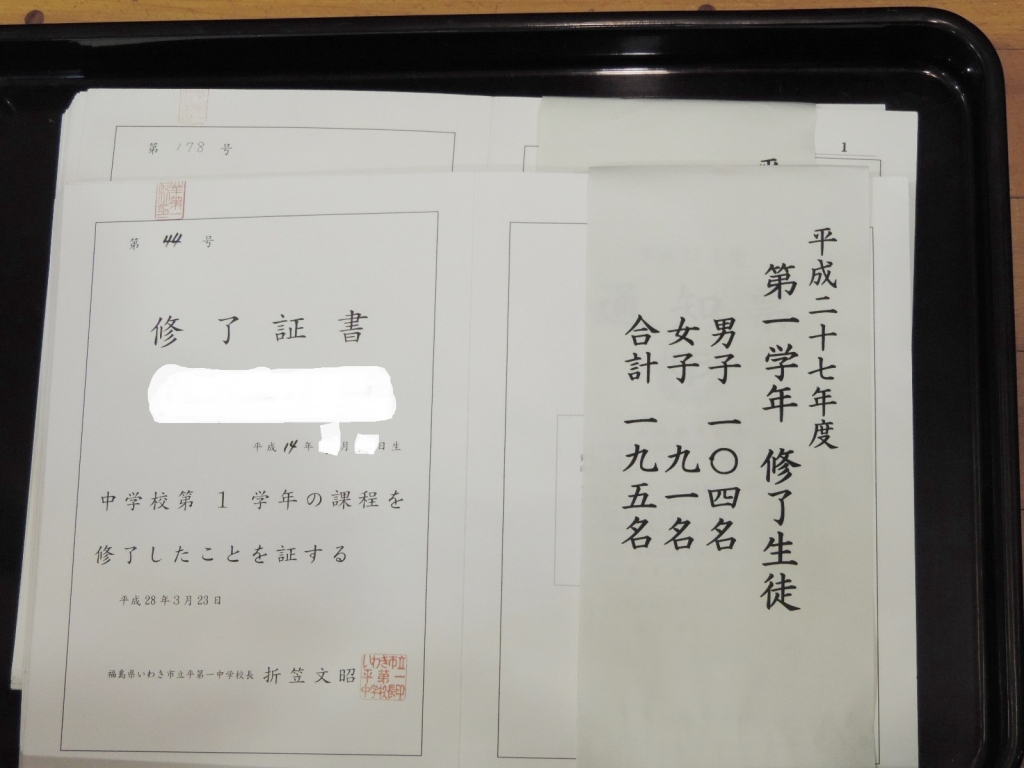 第 178 号
第 44 号
修了証書
平成 14 年 月 日生
中学校第 1 学年の課程を
修了したことを証する
平成28年3月23日
福島県いわき市立平第一中学校長 折笠文昭
いわき市立
平第一
中学校長印
1
平
平成二十七年度
第一学年 修了生徒
男子 一〇四名
女子 九一名
合計 一九五名